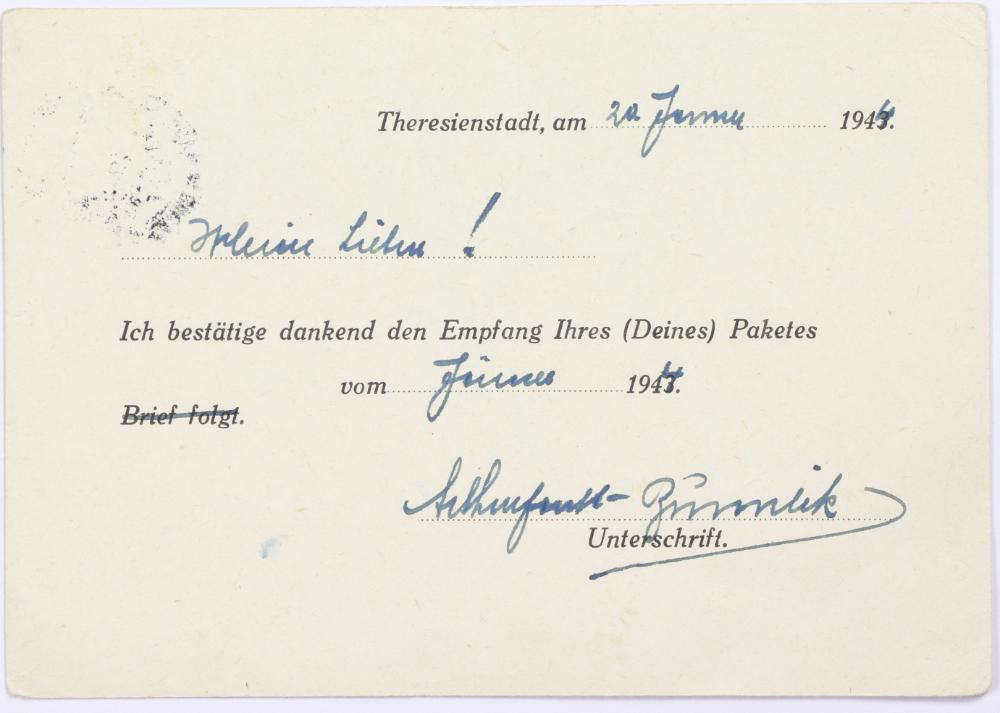 Theresienstadt, am 20 Jänner 1944.
Meine Lieben !
Ich bestätige dankend den Empfang Ihres (Deines) Paketes
vom Jänner 1944.
Brief folgt.
Unterschrift.